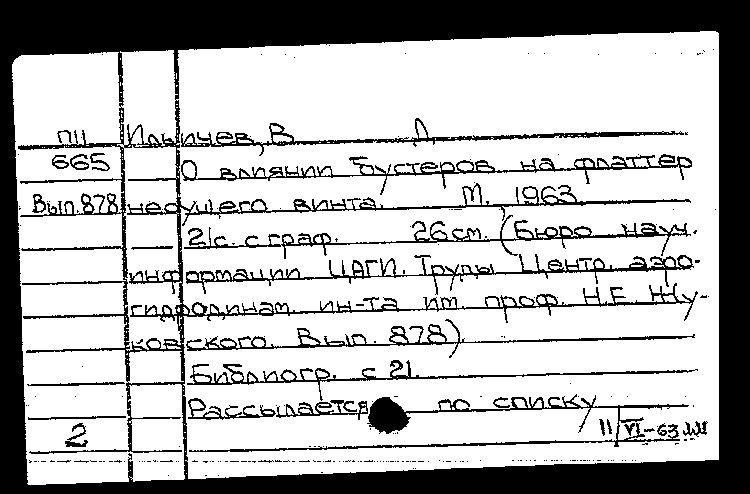 ПII Ильичев, В Л
665 О влиянии бустеров на флаттер
Вып.878 несущего винта. М. 1963
21с. с граф. 26 см. (Бюро науч.
информации ЦАГИ. Труды Центр. аэро-
гидродинам. ин-та им. проф. Н.Е. Жу-
ковского. Вып. 878).
Библиогр. с 21.
Рассылается по списку
2 11/VI-63